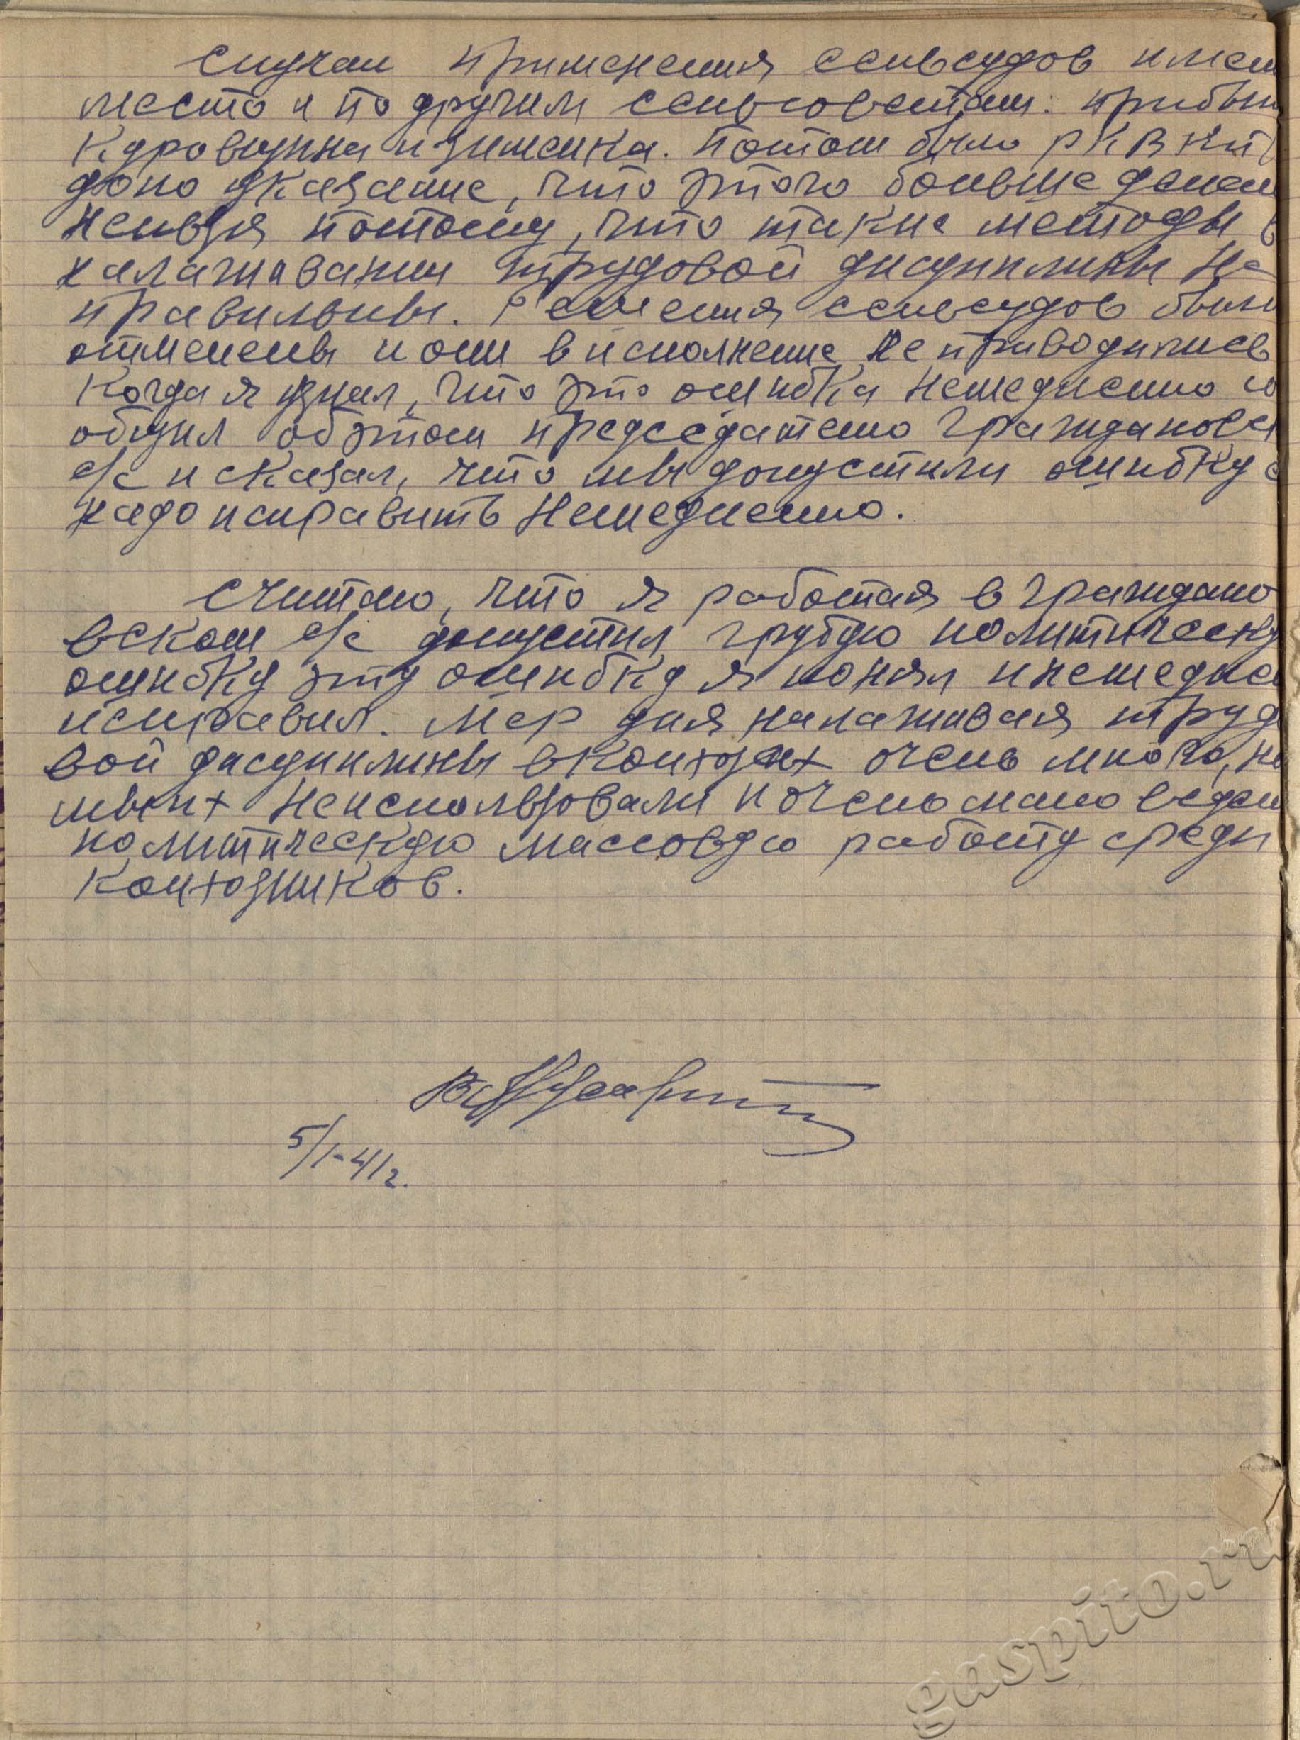 Случаи применения сельсудов имели
место и по другим сельсоветам:
и Зименка. Потом было РК ВКП
дано указание, что этого больше делать
нельзя потому, что такие методы в
налаживании трудовой дисциплины не
правильны. Решения сельсудов были
отменены и они в исполнение не приводились
Когда я узнал, что это ошибка немедленно со
общил об этом председателю Граждановск
с/с и сказал, что мы допустили ошибку
надо исправить немедленно.
Считаю, что я работая в Граждано
вском с/с допустил грубую политическу
ошибку эту ошибку я понял и немедлен
исправил. Мер для налаживая трудо
вой дисциплины в колхозах очень много, но
мы их не использовали и очень мало ведем
политическую массовую работу среди
колхозников.
5/I-41г.
gaspito.ru